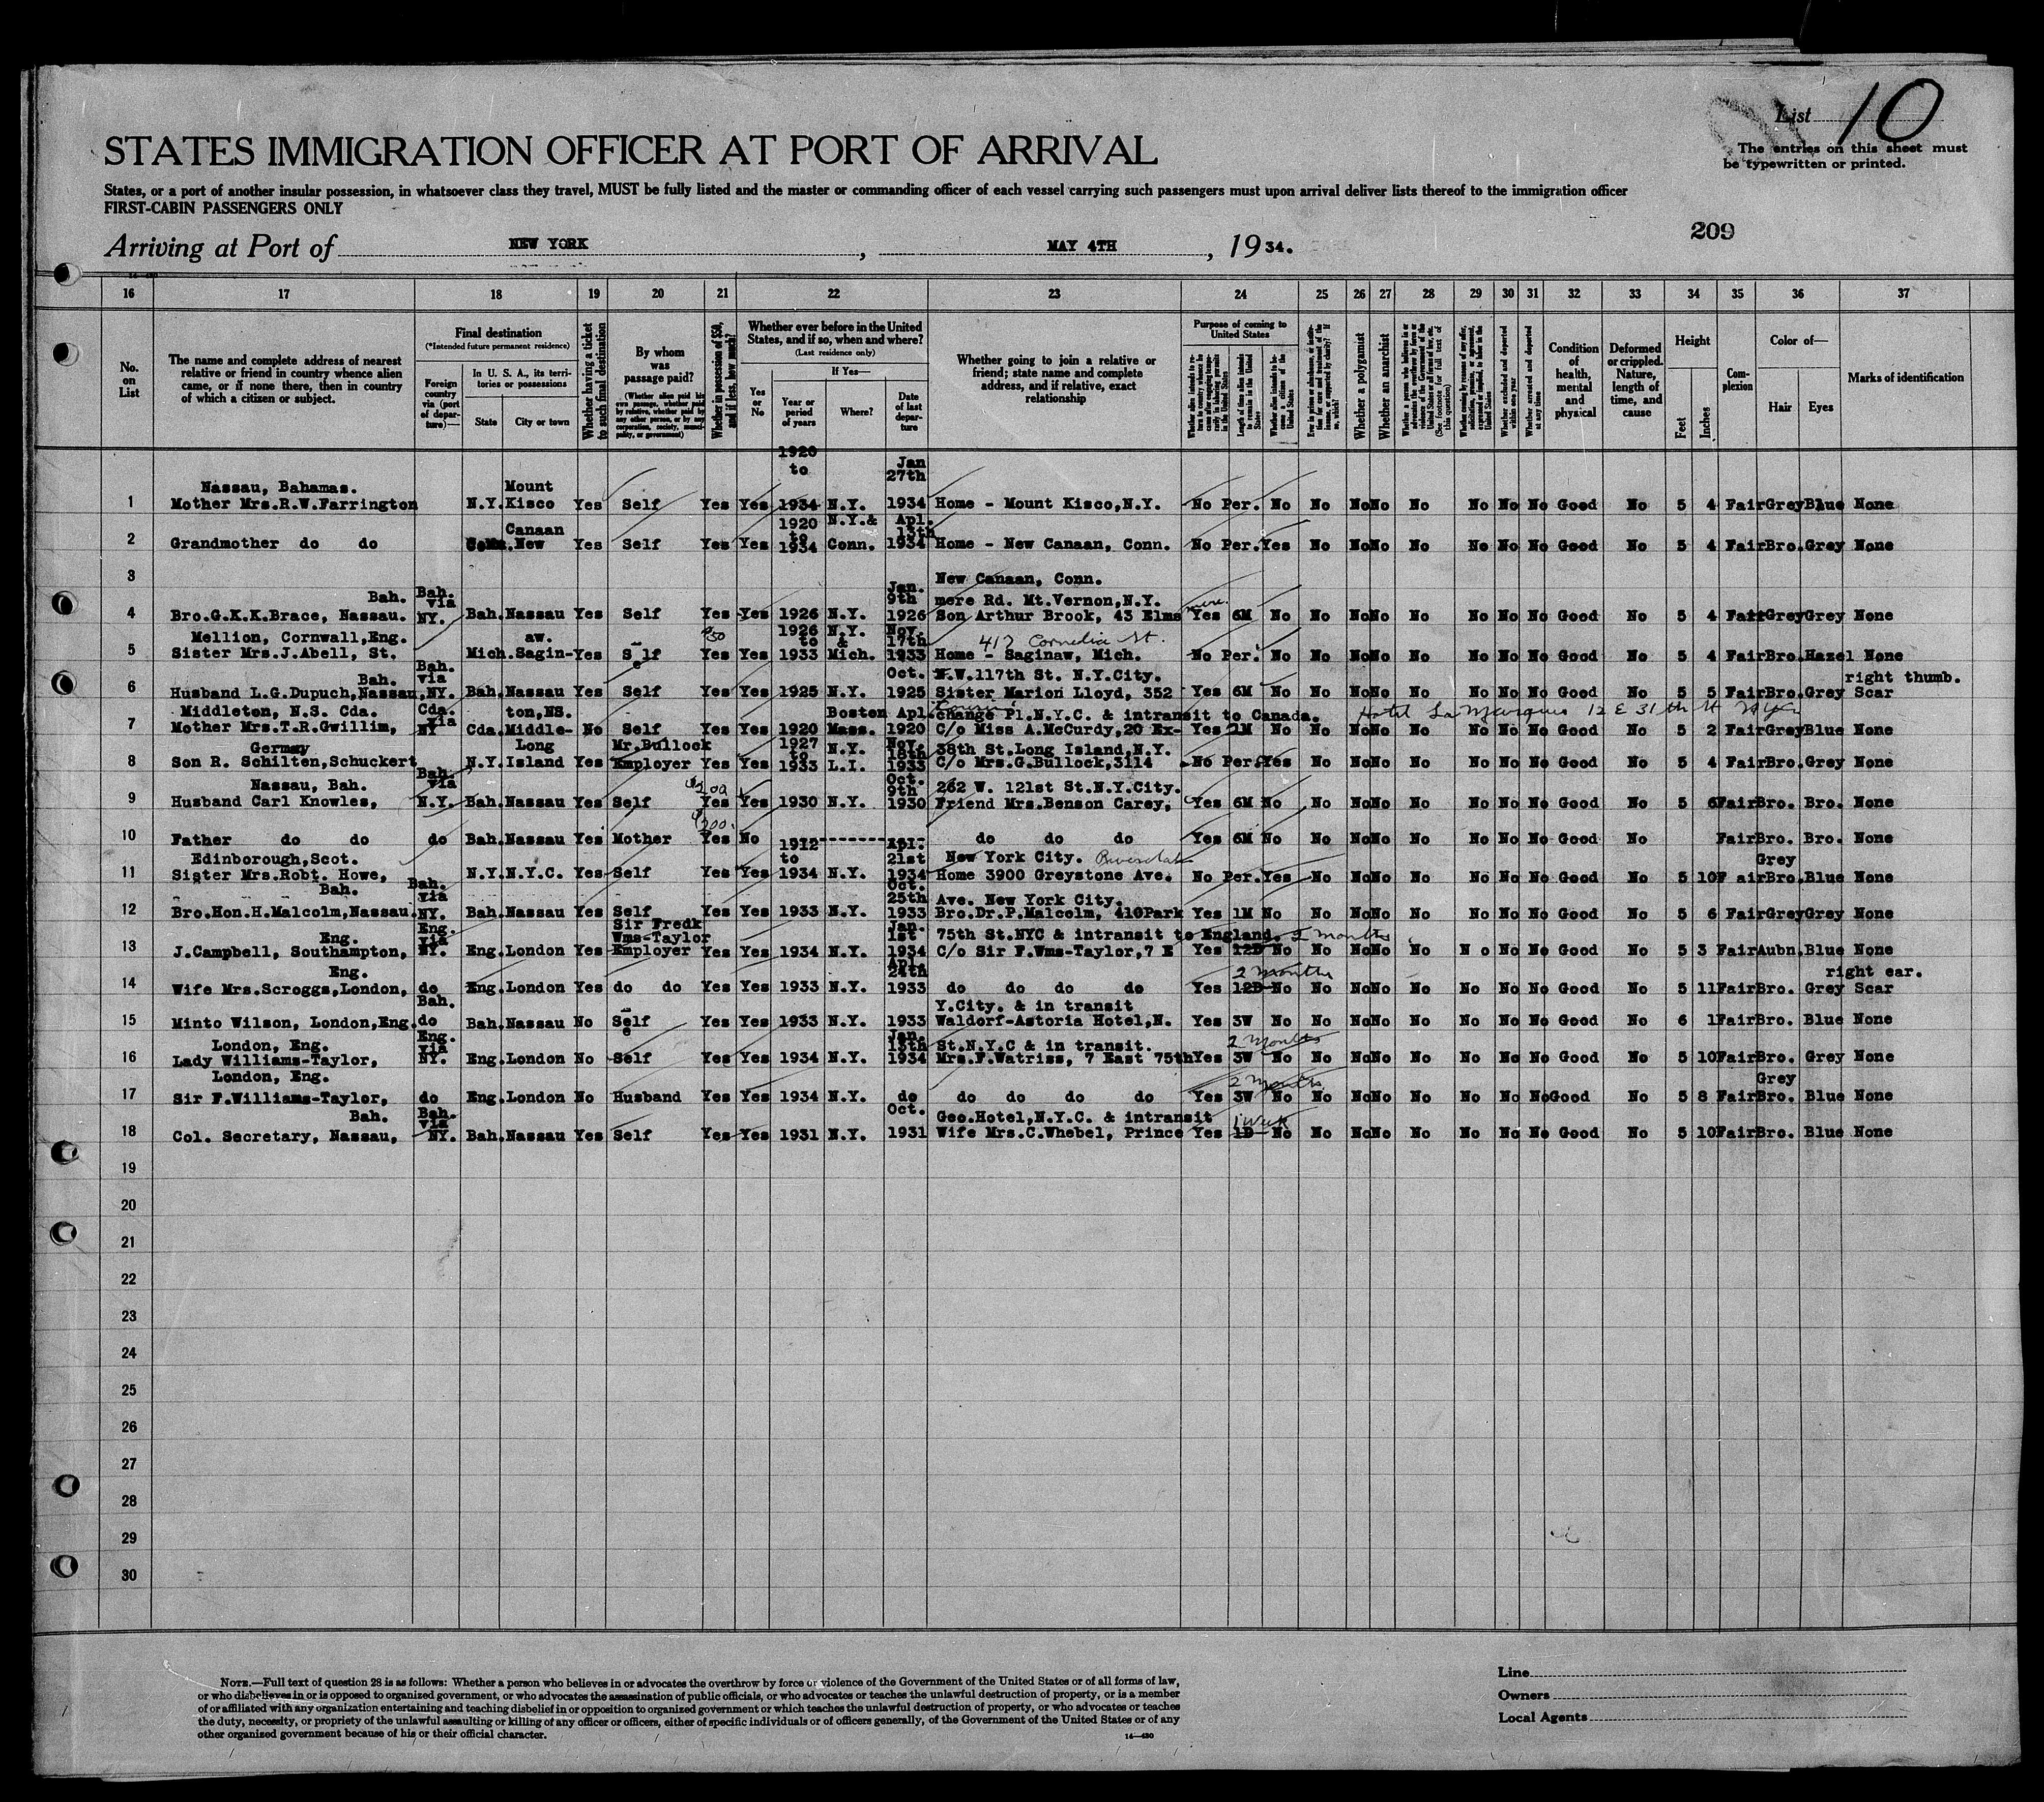 List 10
The entries on this sheet must
be typewritten or printed.
STATES IMMIGRATION OFFICER AT PORT OF ARRIVAL
States, or a port of another insular possession, in whatsoever class they travel, MUST be fully listed and the master or commanding officer of each vessel carrying such passengers must upon arrival deliver lists thereof to the immigration officer
FIRST-CABIN PASSENGERS ONLY
209
Arriving at Port of NEW YORK, MAY 4TH, 1934.
16 17 18 19 20 21 22 23 24 25 26 27 28 29 30 31 32 33 34 35 36 37
No. on List
The name and complete address of nearest
relative or friend in country whence alien
came, or if none there, then in country
of which a citizen or subject.
Final destination
(*Intended future permanent residence)
Foreign country via (port of departure)—
In U. S. A., its territories or possessions
State
City or town
Whether having a ticket to such final destination
By whom was passage paid?
(Whether alien paid his own passage, whether paid by relative, whether paid by any other person, or by any corporation, society, municipality, or government)
Whether in possession of $50, and if less, how much?
Whether ever before in the United
States, and if so, when and where?
(Last residence only)
Yes or No
If Yes—
Year or period of years
Where?
Date of last departure
Whether going to join a relative or
friend; state name and complete
address, and if relative, exact
relationship
Purpose of coming to United States
Length of time alien intends to remain in the United States
Whether alien intends to become a citizen of the United States
Whether a polygamist
Whether an anarchist
Whether excluded and deported within one year
Whether arrested and deported at any time
Condition of health, mental and physical
Deformed or crippled. Nature, length of time, and cause
Height
Feet
Inches
Complexion
Color of—
Hair
Eyes
Marks of identification
Nassau, Bahamas. Mount 1920 to Jan 27th
1 Mother Mrs.R.W.Farrington N.Y. Kisco Yes Self Yes Yes 1934 N.Y. 1934 Home - Mount Kisco,N.Y. No Per. No No No No No No No No Good No 5 4 Fair Grey Blue None
Canaan 1920 to N.Y.& Apl. 13th
2 Grandmother do do Conn. New Yes Self Yes Yes 1934 Conn. 1934 Home - New Canaan, Conn. No Per. Yes No No No No No No No Good No 5 4 Fair Bro. Grey None
3 New Canaan, Conn.
Bah. Bah. via Jan. 9th mere Rd. Mt.Vernon,N.Y.
4 Bro.G.K.K.Brace, Nassau. NY. Bah. Nassau Yes Self Yes Yes 1926 N.Y. 1926 Son Arthur Brook, 43 Elms Yes 6M No No No No No No No No Good No 5 4 Fair Grey Grey None
Mellion, Cornwall,Eng. aw. $50 1926 to N.Y. & Nov. 17th 417 Cornelia St.
5 Sister Mrs.J.Abell, St. Mich. Sagin- Yes Self Yes Yes 1933 Mich. 1933 Home - Saginaw, Mich. No Per. No No No No No No No No Good No 5 4 Fair Bro. Hazel None
Bah. Bah. via Oct. W.117th St. N.Y.City. right thumb.
6 Husband L.G.Dupuch,Nassau, NY. Bah. Nassau Yes Self Yes Yes 1925 N.Y. 1925 Sister Marion Lloyd, 352 Yes 6M No No No No No No No No Good No 5 5 Fair Bro. Grey Scar
Middleton, N.S. Cda. Cda. via ton,NS. Boston Apl. Cousin change Pl.N.Y.C. & intransit to Canada. Hotel La Marquis 12 E 31 th St
7 Mother Mrs.T.R.Gwillim, NY Cda. Middle- No Self Yes Yes 1920 Mass. 1920 C/o Miss A.McCurdy,20 Ex- Yes 1M No No No No No No No No Good No 5 2 Fair Grey Blue None
Germany Long Mr.Bullock 1927 to N.Y. Nov. 18th 38th St.Long Island,N.Y.
8 Son R. Schilten,Schuckert N.Y. Island Yes Employer Yes Yes 1933 L.I. 1933 C/o Mrs.G.Bullock,3114 No Per. Yes No No No No No No No Good No 5 4 Fair Bro. Grey None
Nassau, Bah. Bah. via $200 Oct. 9th 262 W. 121st St.N.Y.City.
9 Husband Carl Knowles, N.Y. Bah. Nassau Yes Self Yes Yes 1930 N.Y. 1930 Friend Mrs.Benson Carey, Yes 6M No No No No No No No No Good No 5 6 Fair Bro. Bro. None
$200.
10 Father do do do Bah. Nassau Yes Mother Yes No ---------- do do do Yes 6M No No No No No No No No Good No Fair Bro. Bro. None
Edinborough,Scot. 1912 to Apl. 21st New York City. Riverdale Grey
11 Sister Mrs.Robt. Howe, N.Y. N.Y.C. Yes Self Yes Yes 1934 N.Y. 1934 Home 3900 Greystone Ave. No Per. Yes No No No No No No No Good No 5 10 F air Bro. Blue None
Bah. Bah. via Oct. 25th Ave. New York City.
12 Bro.Hon.H.Malcolm,Nassau. NY. Bah. Nassau Yes Self Yes Yes 1933 N.Y. 1933 Bro.Dr.P.Malcolm, 410Park Yes 1M No No No No No No No No Good No 5 6 Fair Grey Grey None
Eng. Eng. via Sir Fredk Wms-Taylor Jan. 1st 75th St.NYC & intransit to England. 2 months
13 J.Campbell, Southampton, NY. Eng. London Yes Employer Yes Yes 1934 N.Y. 1934 C/o Sir F.Wms-Taylor,7 E Yes 12D No No No No No N o No No Good No 5 3 Fair Aubn. Blue None
Eng. Apl. 24th 2 months right ear.
14 Wife Mrs.Scroggs,London, do Eng. London Yes do do Yes Yes 1933 N.Y. 1933 do do do do Yes 12D No No No No No No No No Good No 5 11 Fair Bro. Grey Scar
Bah. Y.City. & in transit
15 Minto Wilson, London,Eng. do Bah. Nassau No Self Yes Yes 1933 N.Y. 1933 Waldorf-Astoria Hotel,N. Yes 3W No No No No No No No No Good No 6 1 Fair Bro. Blue None
London, Eng. Eng. via Jan. 13th St.N.Y.C & in transit. 2 months
16 Lady Williams-Taylor, NY. Eng. London No Self Yes Yes 1934 N.Y. 1934 Mrs.F.Watriss, 7 East 75th Yes 3W No No No No No No No No Good No 5 10 Fair Bro. Grey None
London, Eng. 2 months Grey
17 Sir F.Williams-Taylor, do Eng. London No Husband Yes Yes 1934 N.Y. do do do do do Yes 3W No No No No No No No No Good No 5 8 Fair Bro. Blue None
Bah. Bah. via Oct. Geo.Hotel,N.Y.C. & intransit 1 week
18 Col. Secretary, Nassau, NY. Bah. Nassau Yes Self Yes Yes 1931 N.Y. 1931 Wife Mrs.C.Whebel, Prince Yes 1D No No No No No No No No Good No 5 10 Fair Bro. Blue None
19
20
21
22
23
24
25
26
27
28
29
30
NOTE.—Full text of question 28 is as follows: Whether a person who believes in or advocates the overthrow by force or violence of the Government of the United States or of all forms of law,
or who disbelieves in or is opposed to organized government, or who advocates the assassination of public officials, or who advocates or teaches the unlawful destruction of property, or is a member
of or affiliated with any organization entertaining and teaching disbelief in or opposition to organized government or which teaches the unlawful destruction of property, or who advocates or teaches
the duty, necessity, or propriety of the unlawful assaulting or killing of any officer or officers, either of specific individuals or of officers generally, of the Government of the United States or of any
other organized government because of his or their official character.
14—430
Line
Owners
Local Agents